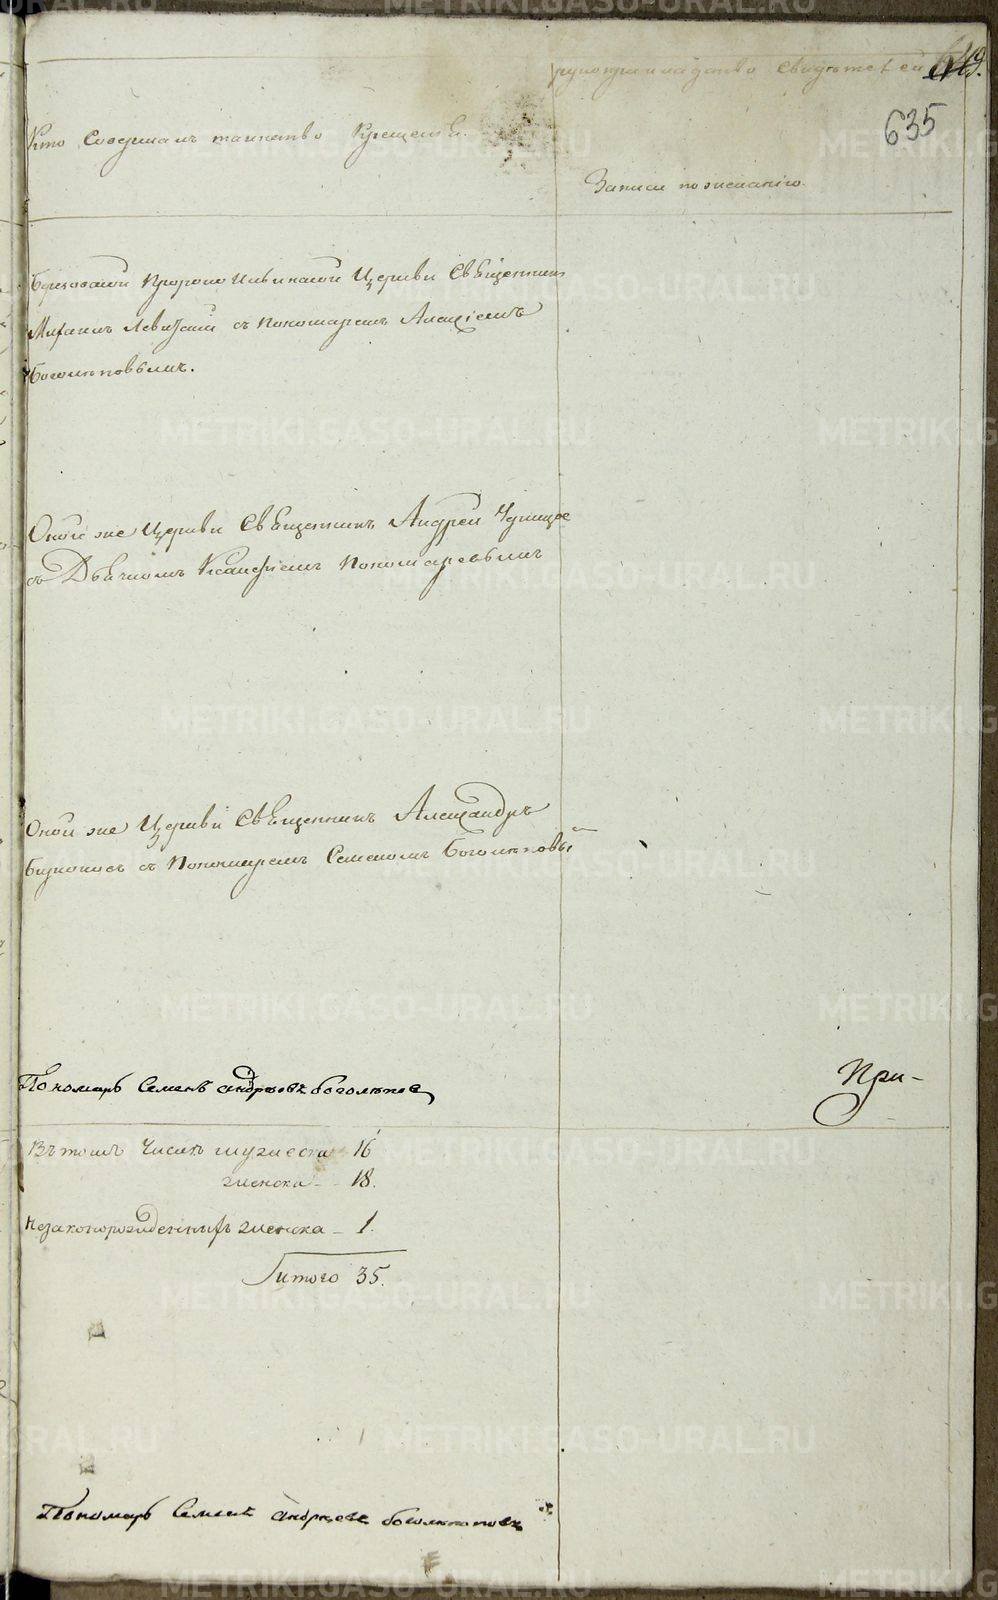 рукоприкладство свидетелей
635
Кто Совершалъ таинство Крещенія.
Записи по желанію.
Пророко Ильинской Церкви Священникъ
Михаилъ Левитскій съ пономаремъ Алексіемъ
Боголеповымъ.
Оной же Церкви Священникъ Андрей
съ Дьячкомъ Пономаревымъ
Оной же Церкви Священникъ Александръ
съ Пономаремъ Семеномъ Боголеповы
Пономарь Семенъ Андреевъ Боголеповъ
При-
Въ томъ числѣ мужеска 16
женска - 18.
Незаконорожденныхъ женска - 1.
Итого 35.
Пономарь Семенъ Андреевъ Боголеповъ
METRIKI.GASO-URAL.RU